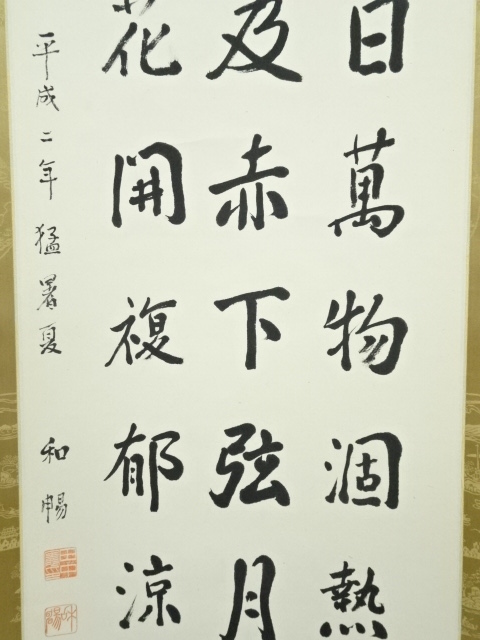 日萬物涸熱
及赤下弦月
花開複郁涼
平成二年猛暑夏 和暢